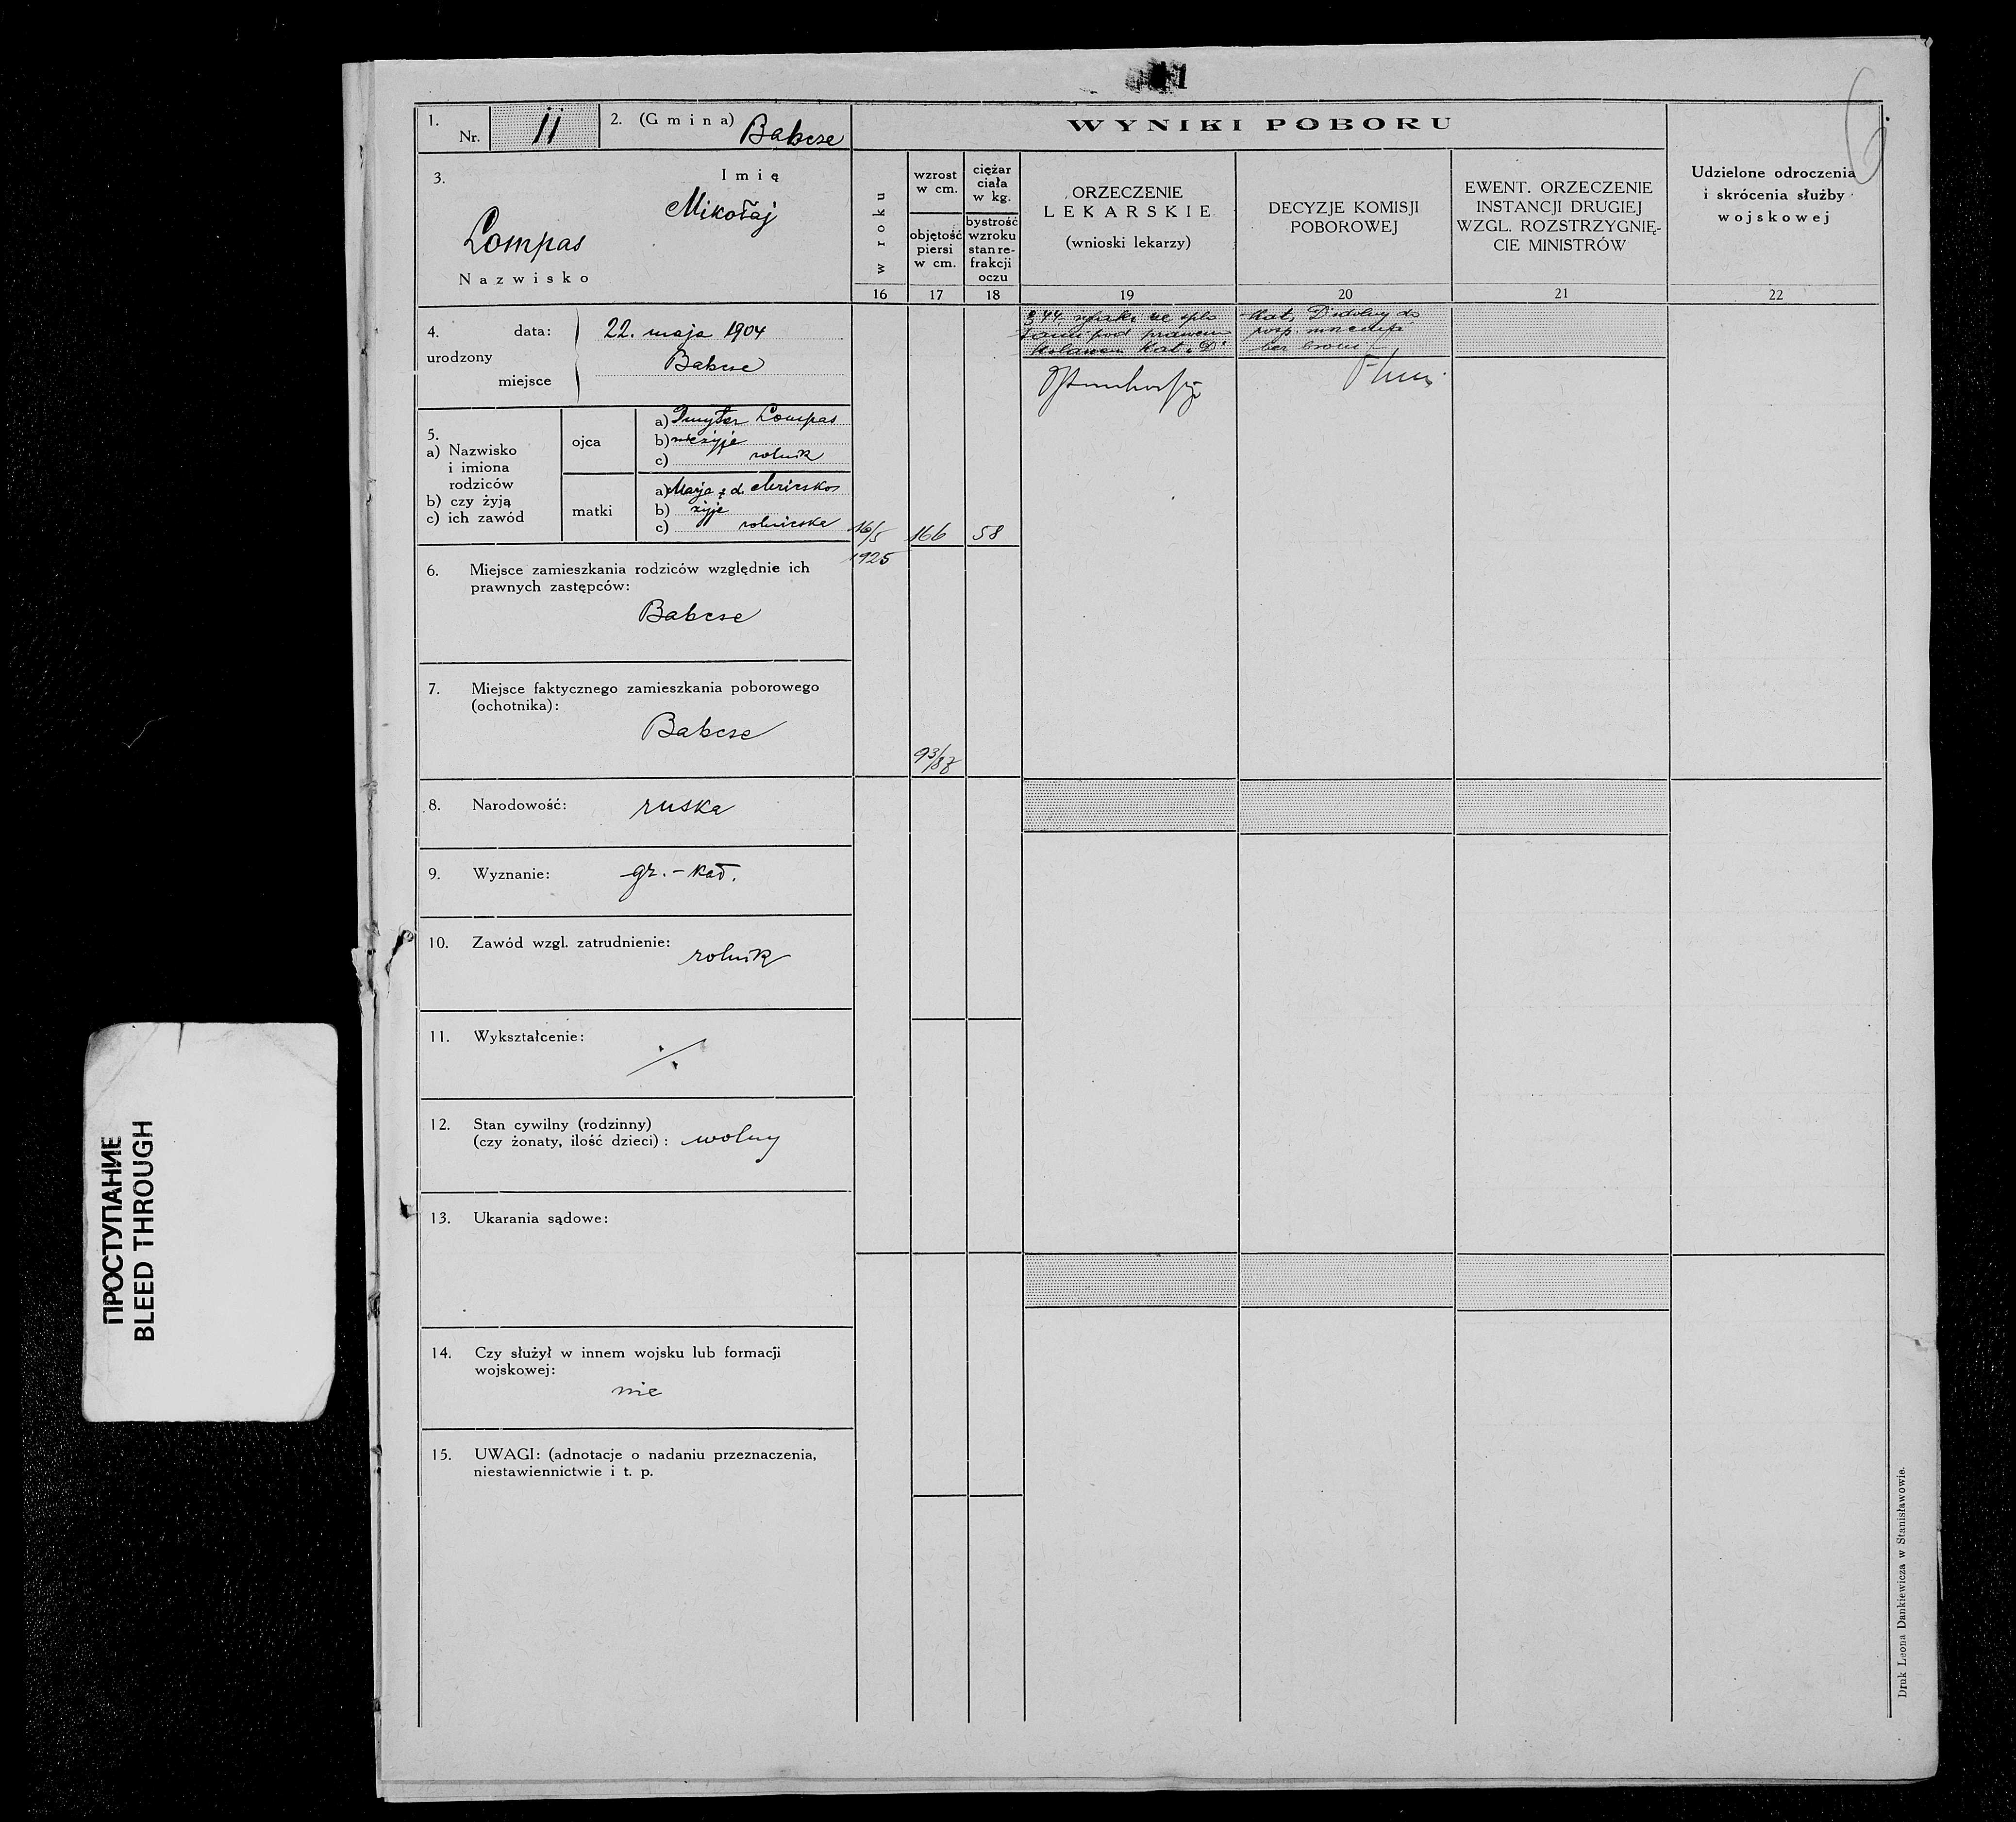 1.
Nr.
11
2. (Gmina)
Babcze
WYNIKI POBORU
3.
Imię
Mikołaj
Lompas
Nazwisko
w roku
wzrost
w cm.
objętość
piersi
w cm.
ciężar
ciała
w kg.
bystrość
wzroku
stan re-
frakcji
oczu
ORZECZENIE
LEKARSKIE
(wnioski lekarzy)
DECYZJE KOMISJI
POBOROWEJ
EWENT. ORZECZENIE
INSTANCJI DRUGIEJ
WZGL. ROZSTRZYGNIĘ-
CIE MINISTRÓW
Udzielone odroczenia
i skrócenia służby
wojskowej
16
17
18
19
20
21
22
4.
urodzony
data:
22. maja 1904
miejsce
Babcze
5.
a) Nazwisko
i imiona
rodziców
b) czy żyją
c) ich zawód
ojca
a) Dmyter Lompas
b) nieżyje
c) rolnik
matki
a) Marja z d.
b) żyje
c) rolniczka
16/5
1925
166
58
93/87
§ 44
pod prawem
kolanem Kat. "D"
Kat. D zdolny do
bez broni
6. Miejsce zamieszkania rodziców względnie ich
prawnych zastępców:
Babcze
7. Miejsce faktycznego zamieszkania poborowego
(ochotnika):
Babcze
8. Narodowość: ruska
9. Wyznanie: gr.-kat.
10. Zawód wzgl. zatrudnienie: rolnik
11. Wykształcenie:
12. Stan cywilny (rodzinny)
(czy żonaty, ilość dzieci): wolny
13. Ukarania sądowe:
14. Czy służył w innem wojsku lub formacji
wojskowej:
nie
15. UWAGI: (adnotacje o nadaniu przeznaczenia,
niestawiennictwie i t. p.
Druk Leona Dankiewicza w Stanisławowie.
ПРОСТУПАНИЕ
BLEED THROUGH